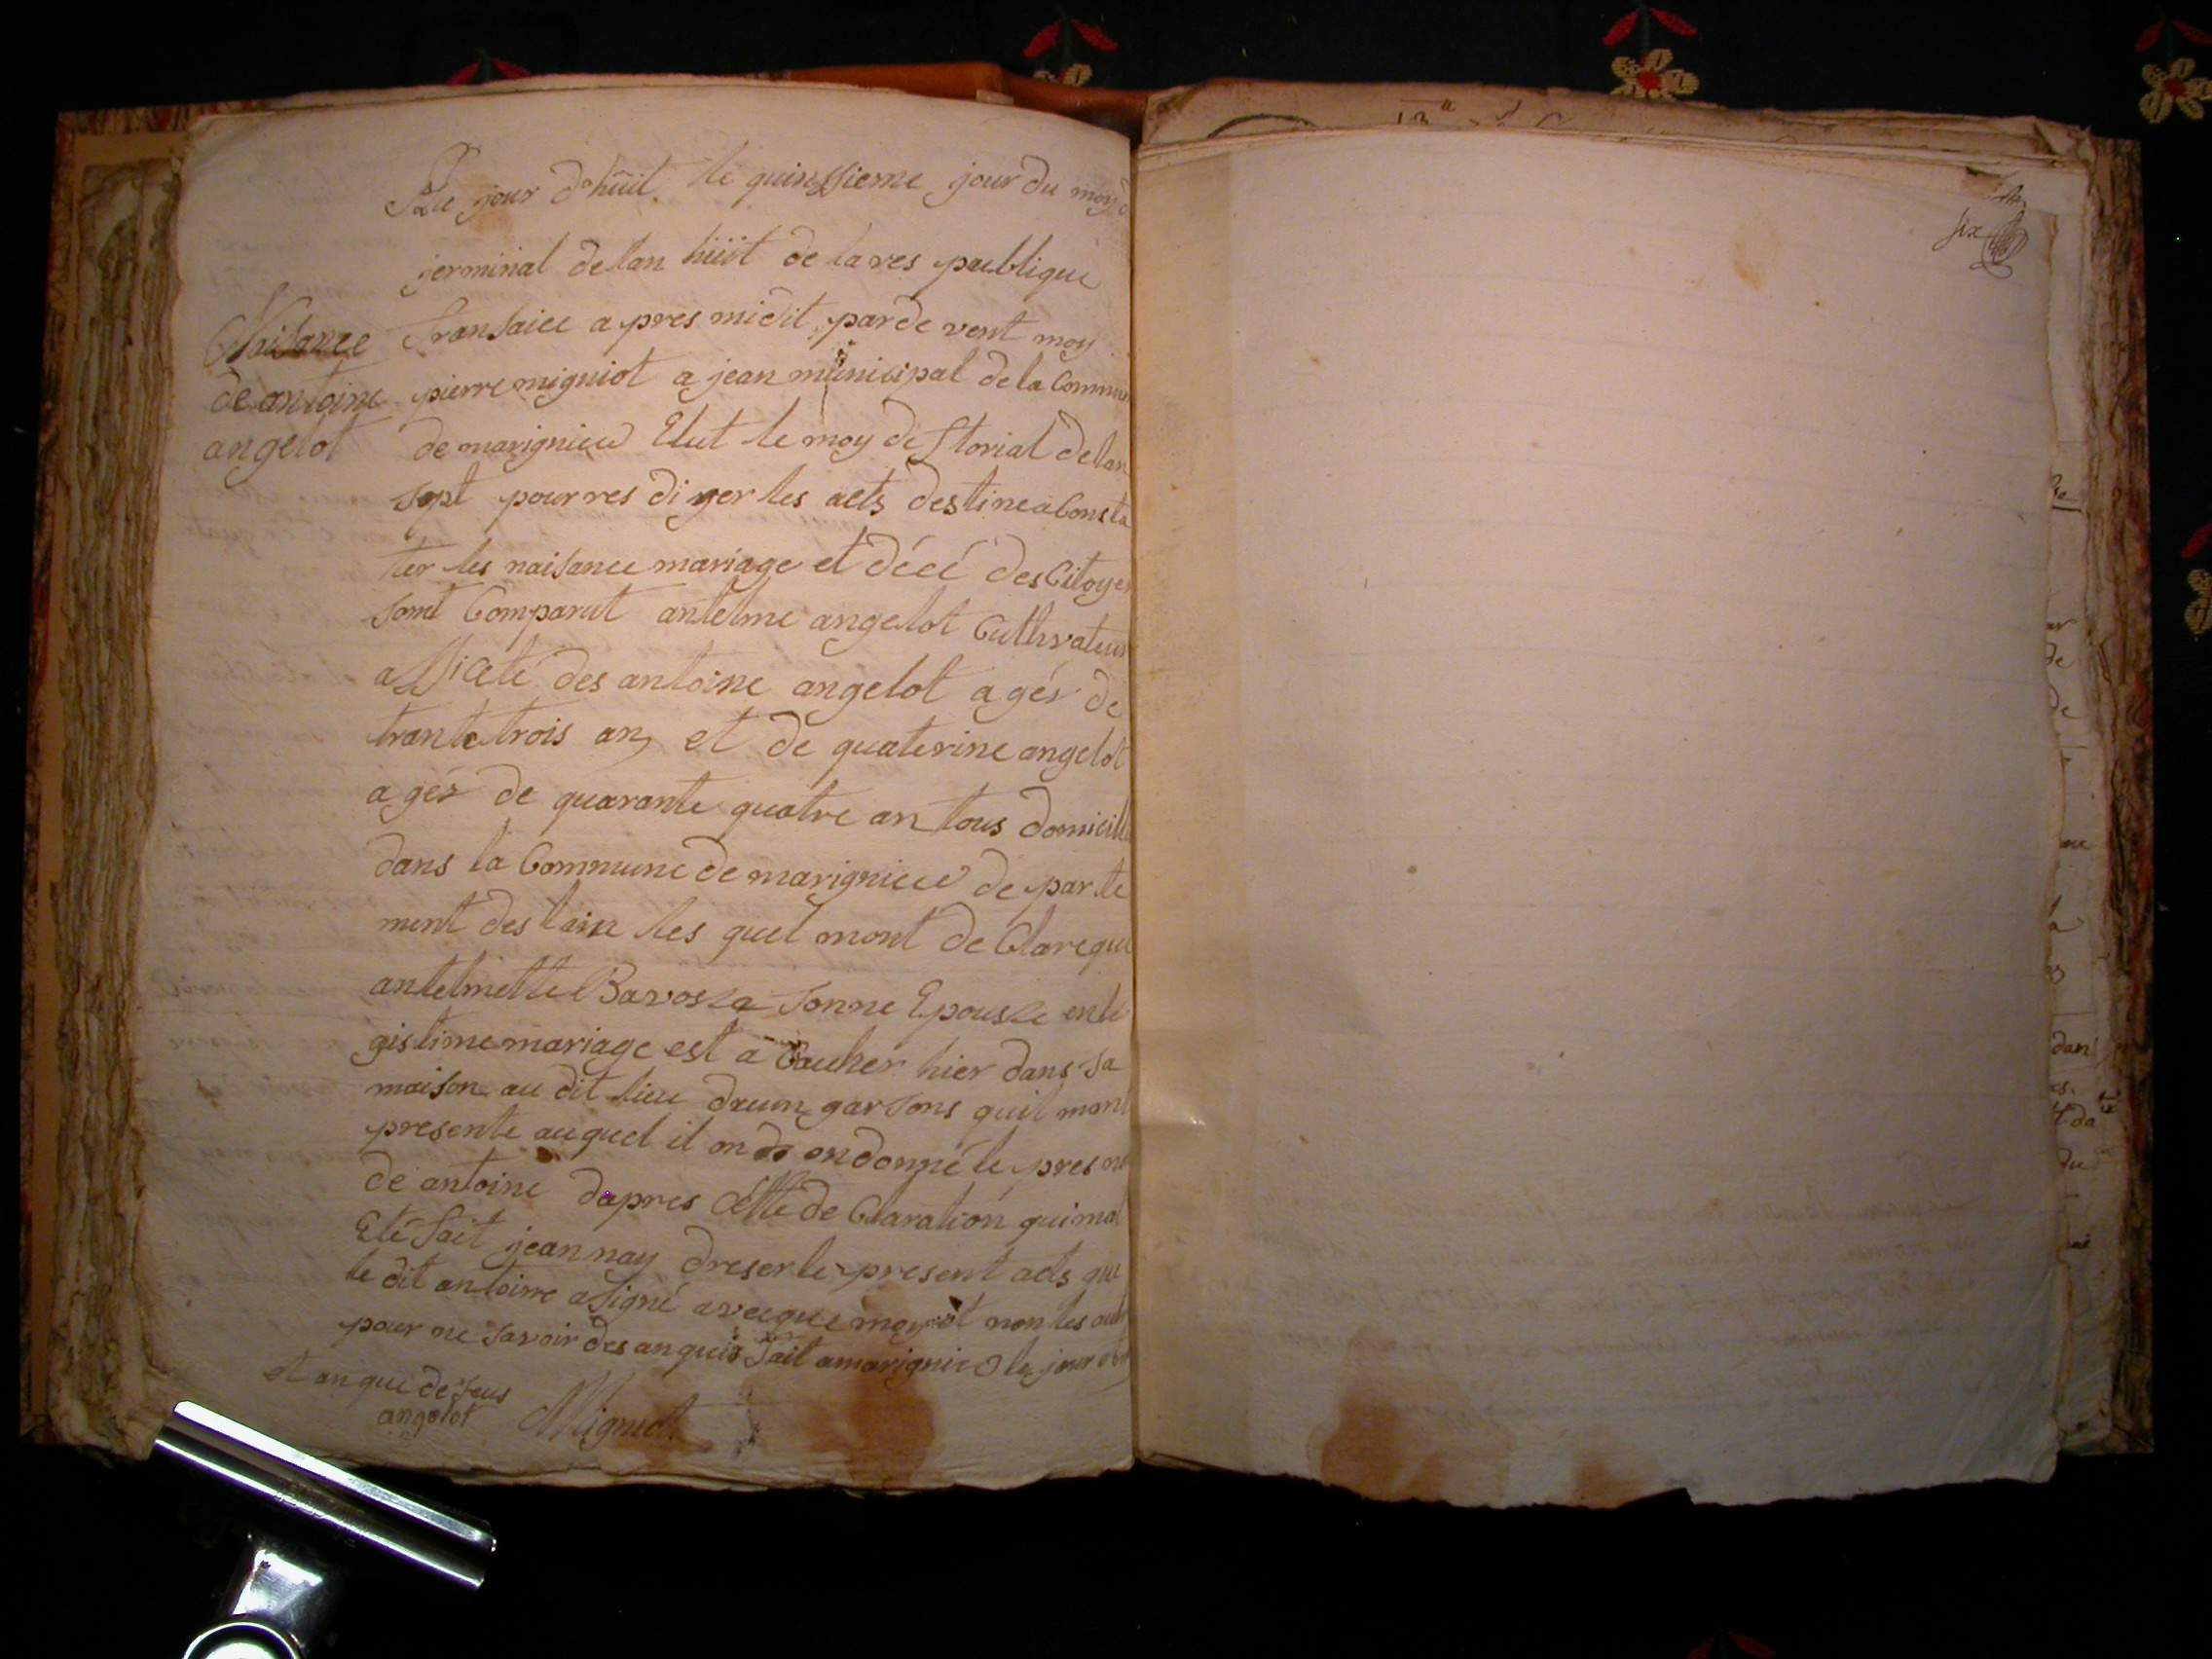 Naisance
de antoine
angelot
Le jour d'huit le quinssieme jour du moy d
jerminal de lan huit de la res publique
fransaice a pres midit par de vent moy
pierre migniot a jean municipal de la Commun
de marignieu Elut le moy de florial de lan
sept pour res diger les acts destine a Consta
ter les naisance mariage et décé des Citoyen
sont Comparut antelme angelot Cultivateur
assicté des antoine angelot agés de
trante trois an et de quaterine angelot
agés de quarante quatre an tous domicille
dans la Commune de marignieu de parte
ment des lain les quel mont de Clare que
antelmette Bavoza sonne Epousse en le
gistime mariage est a Coucher hier dans sa
maison au dit lieu dœun garsons quil mont
presente auquel il on donné le pres no
de antoine dapres Cette de Claration qui mat
Eté fait jean nay dreser le present acts que
le dit antoine a signé avecque moy et non les autr
pour ne savoir des anquis fait a marignieu le jour
et an que de seus
angelot Migniot
six